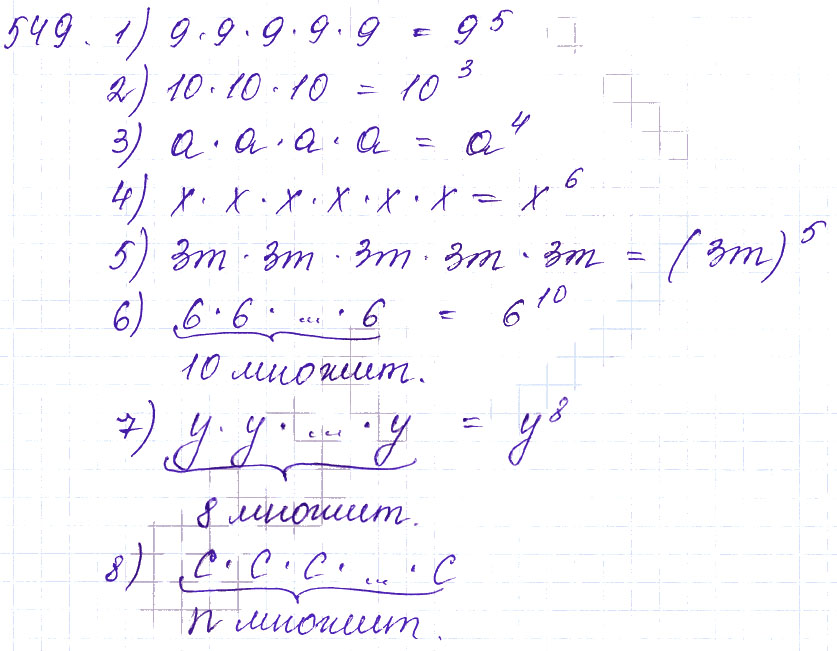 549. 1) 9·9·9·9·9 = 9⁵
2) 10·10·10 = 10³
3) a·a·a·a = a⁴
4) x·x·x·x·x·x = x⁶
5) 3m·3m·3m·3m·3m = (3m)⁵
6) 6·6·...·6 = 6¹⁰
10 множит.
7) y·y·...·y = y⁸
8 множит.
8) c·c·c·...·c
n множит.